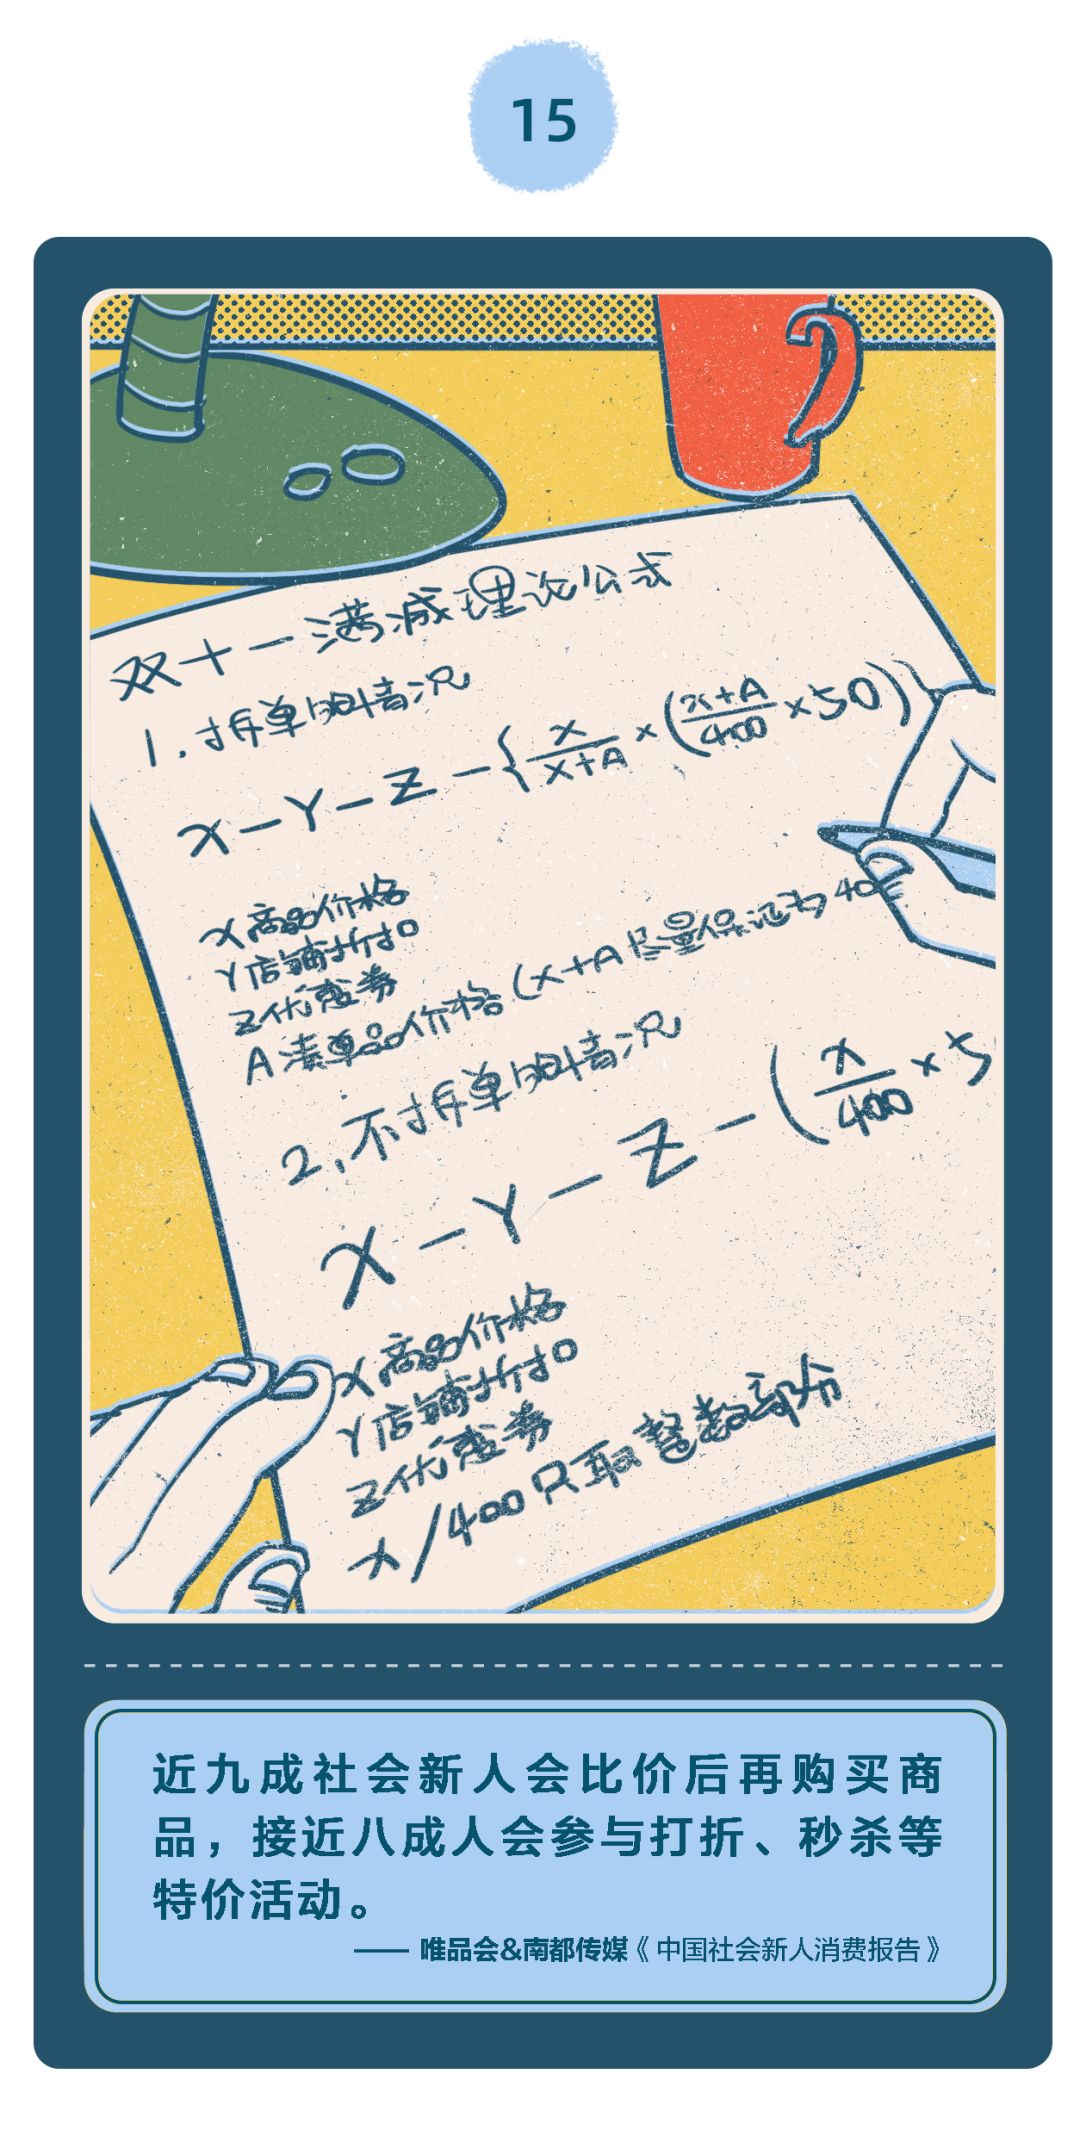 15
双十一满减理论公式
1.拆单的情况
X-Y-Z-{x/(x+A)×((x+A)/400×50)
X商品价格
Y店铺折扣
Z优惠券
A凑单品价格(X+A尽量保证为40
2,不拆单的情况
X-Y-Z-(X/400×5
X商品价格
Y店铺折扣
Z优惠券
X/400只取整数部分
近九成社会新人会比价后再购买商
品，接近八成人会参与打折、秒杀等
特价活动。
——唯品会&南都传媒《中国社会新人消费报告》